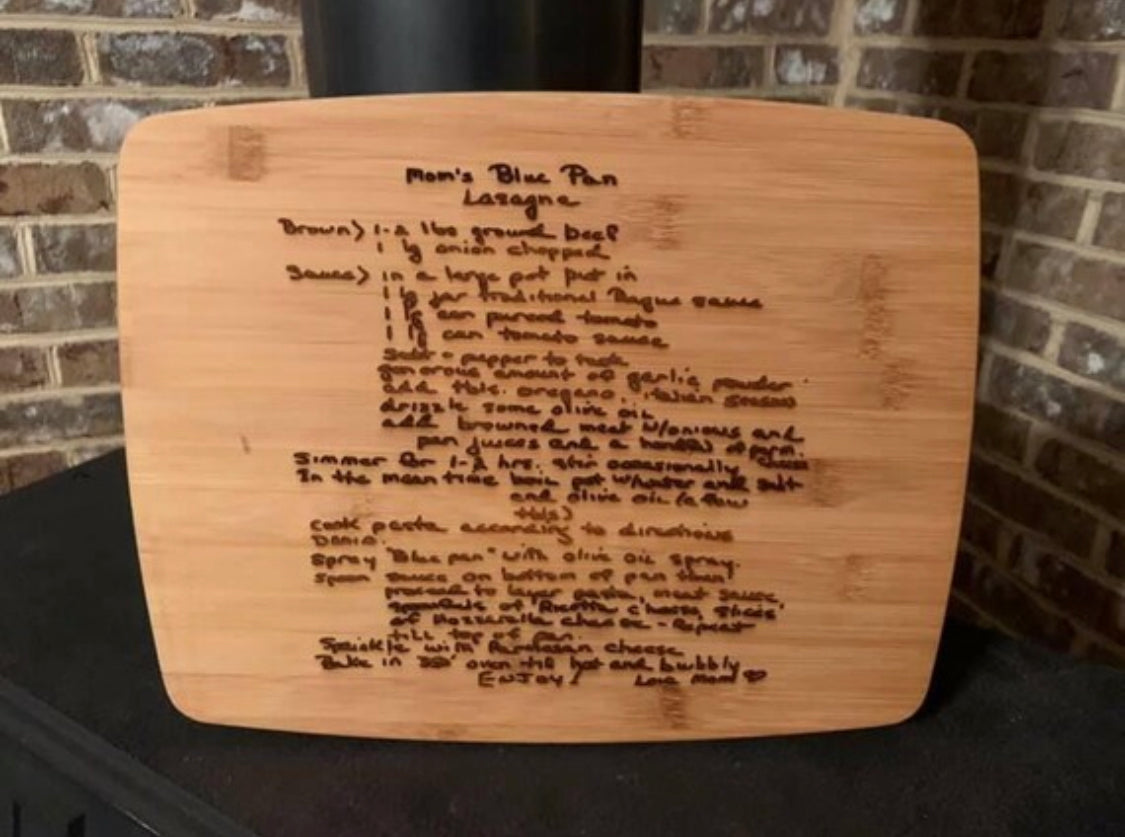 Mom's Blue Pan
Lasagne
Brown> 1-2 lbs ground beef
1 lg onion chopped
Sauce> in a large pot put in
1 lg jar traditional Rague sauce
1 lg can pureed tomato
1 lg can tomato sauce
Salt + pepper to taste
generous amount of garlic powder
add tbls. oregano, italian season
drizzle some olive oil
add browned meat w/onions and
pan juices and a handful of parm.
cheese
Simmer for 1-2 hrs. stir occasionally
In the mean time boil pot w/water and salt
and olive oil (a few
tbls)
cook pasta according to directions
DRAIN.
Spray "Blue pan" with olive oil spray.
Spoon sauce on bottom of pan then
proceed to layer pasta, meat sauce
spoonfuls of Ricotta cheese slices
of Mozzarella cheese - Repeat
till top of pan.
Sprinkle with Parmesan cheese
Bake in 350° oven till hot and bubbly
ENJOY! Love Mom ♡